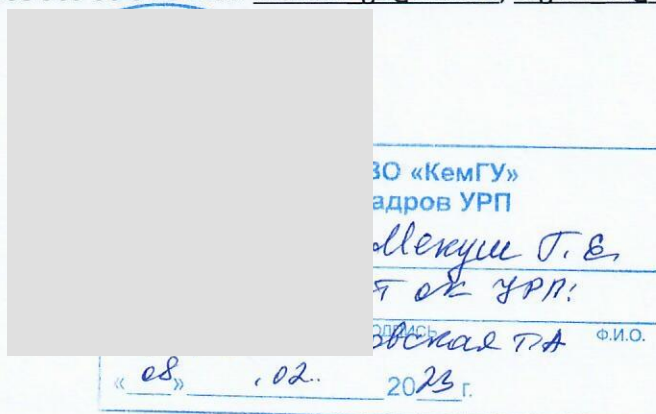 ВО «КемГУ»
адров УРП
Мекуш Г.Е.
т ОК УРП:
подпись
овская Т.А Ф.И.О.
«08» .02. 2023 г.